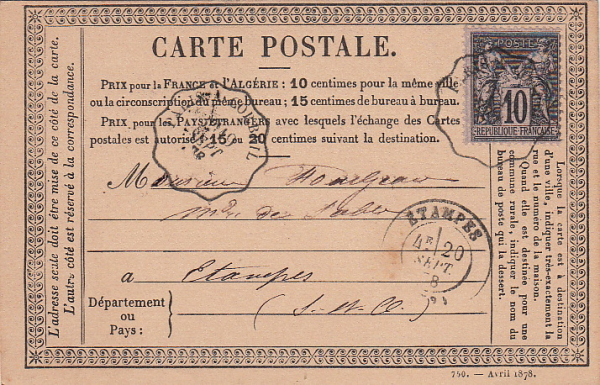 L'adresse seule doit être mise de ce côté de la carte.
L'autre côté est réservé à la correspondance.
CARTE POSTALE.
PRIX pour la FRANCE et l'ALGÉRIE : 10 centimes pour la même ville
ou la circonscription du même bureau ; 15 centimes de bureau à bureau.
PRIX pour les PAYS ÉTRANGERS avec lesquels l'échange des Cartes
postales est autorisé : 15 ou 20 centimes suivant la destination.
POSTES
10
REPUBLIQUE FRANÇAISE
SEPT
Monsieur
à Etampes
(S.-et-O.)
Département
ou
Pays :
ÉTAMPES
4E 20
SEPT
78
(91)
Lorsque la carte est à destination
d'une ville, indiquer très-exactement la
rue et le numéro de la maison.
Quand elle est destinée pour une
commune rurale, indiquer le nom du
bureau de poste qui la dessert.
750. — Avril 1878.